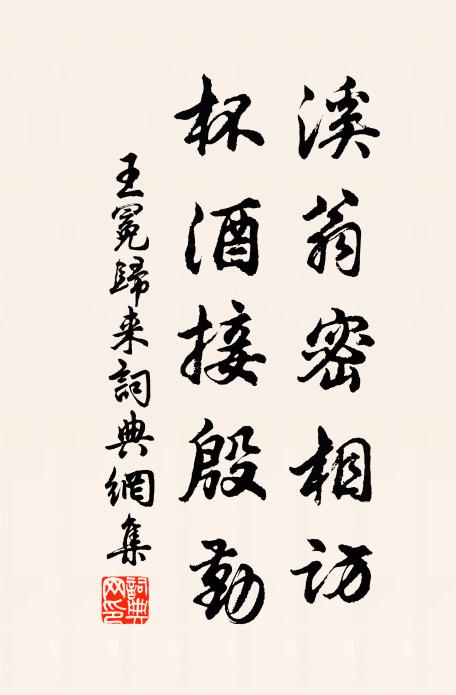 溪翁密相訪
杯酒接殷勤
王冕歸来詞典網集
詞典網印